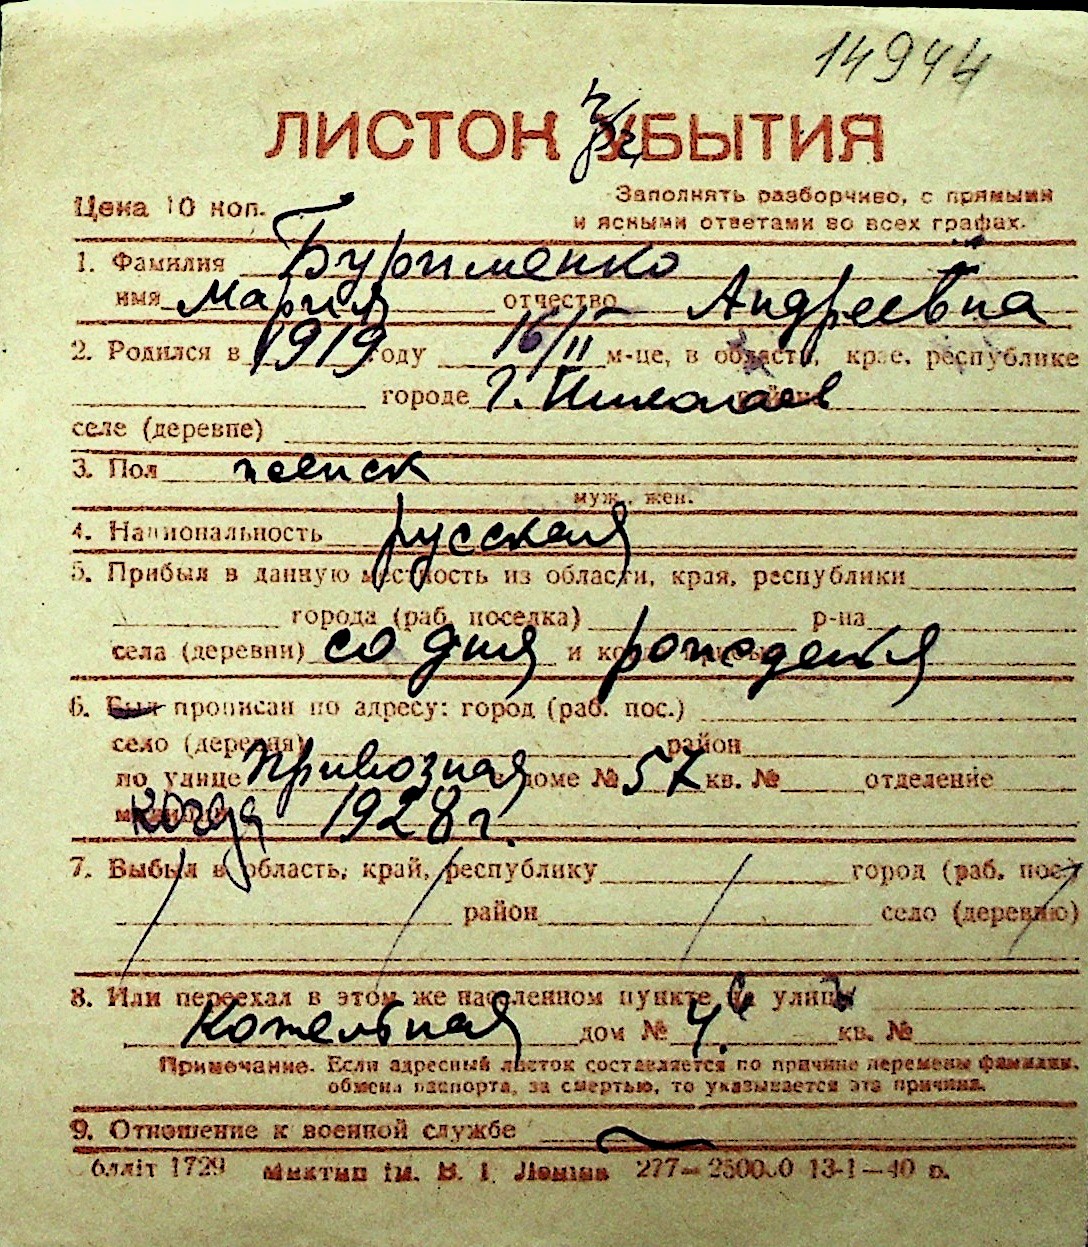 14944
ЛИСТОК УБЫТИЯ
Цена 10 коп.
Заполнять разборчиво, с прямыми
и ясными ответами во всех графах.
1. Фамилия Бурименко
имя Мария отчество Андреевна
2. Родился в 1919 году 16/II м-це, в области, крае, республике
городе г. Николаев
селе (деревне)
3. Пол женск
муж., жен.
4. Национальность русская
5. Прибыл в данную местность из области, края, республики
города (раб. поселка) р-на
села (деревни) со дня и рождения
6. Был прописан по адресу: город (раб. пос.)
село (деревня) район
по улице Привозная доме № 57 кв. № отделение
когда 1928 г.
7. Выбыл в область, край, республику город (раб. пос.)
район село (деревню)
8. Или переехал в этом же населенном пункте с улицы
Котельная дом № 4. кв. №
Примечание. Если адресный листок составляется по причине перемены фамилии,
обмена паспорта, за смертью, то указывается эта причина.
9. Отношение к военной службе
блліт 1729 ім. В. І. Леніна 277— 250000 13-1—40 р.